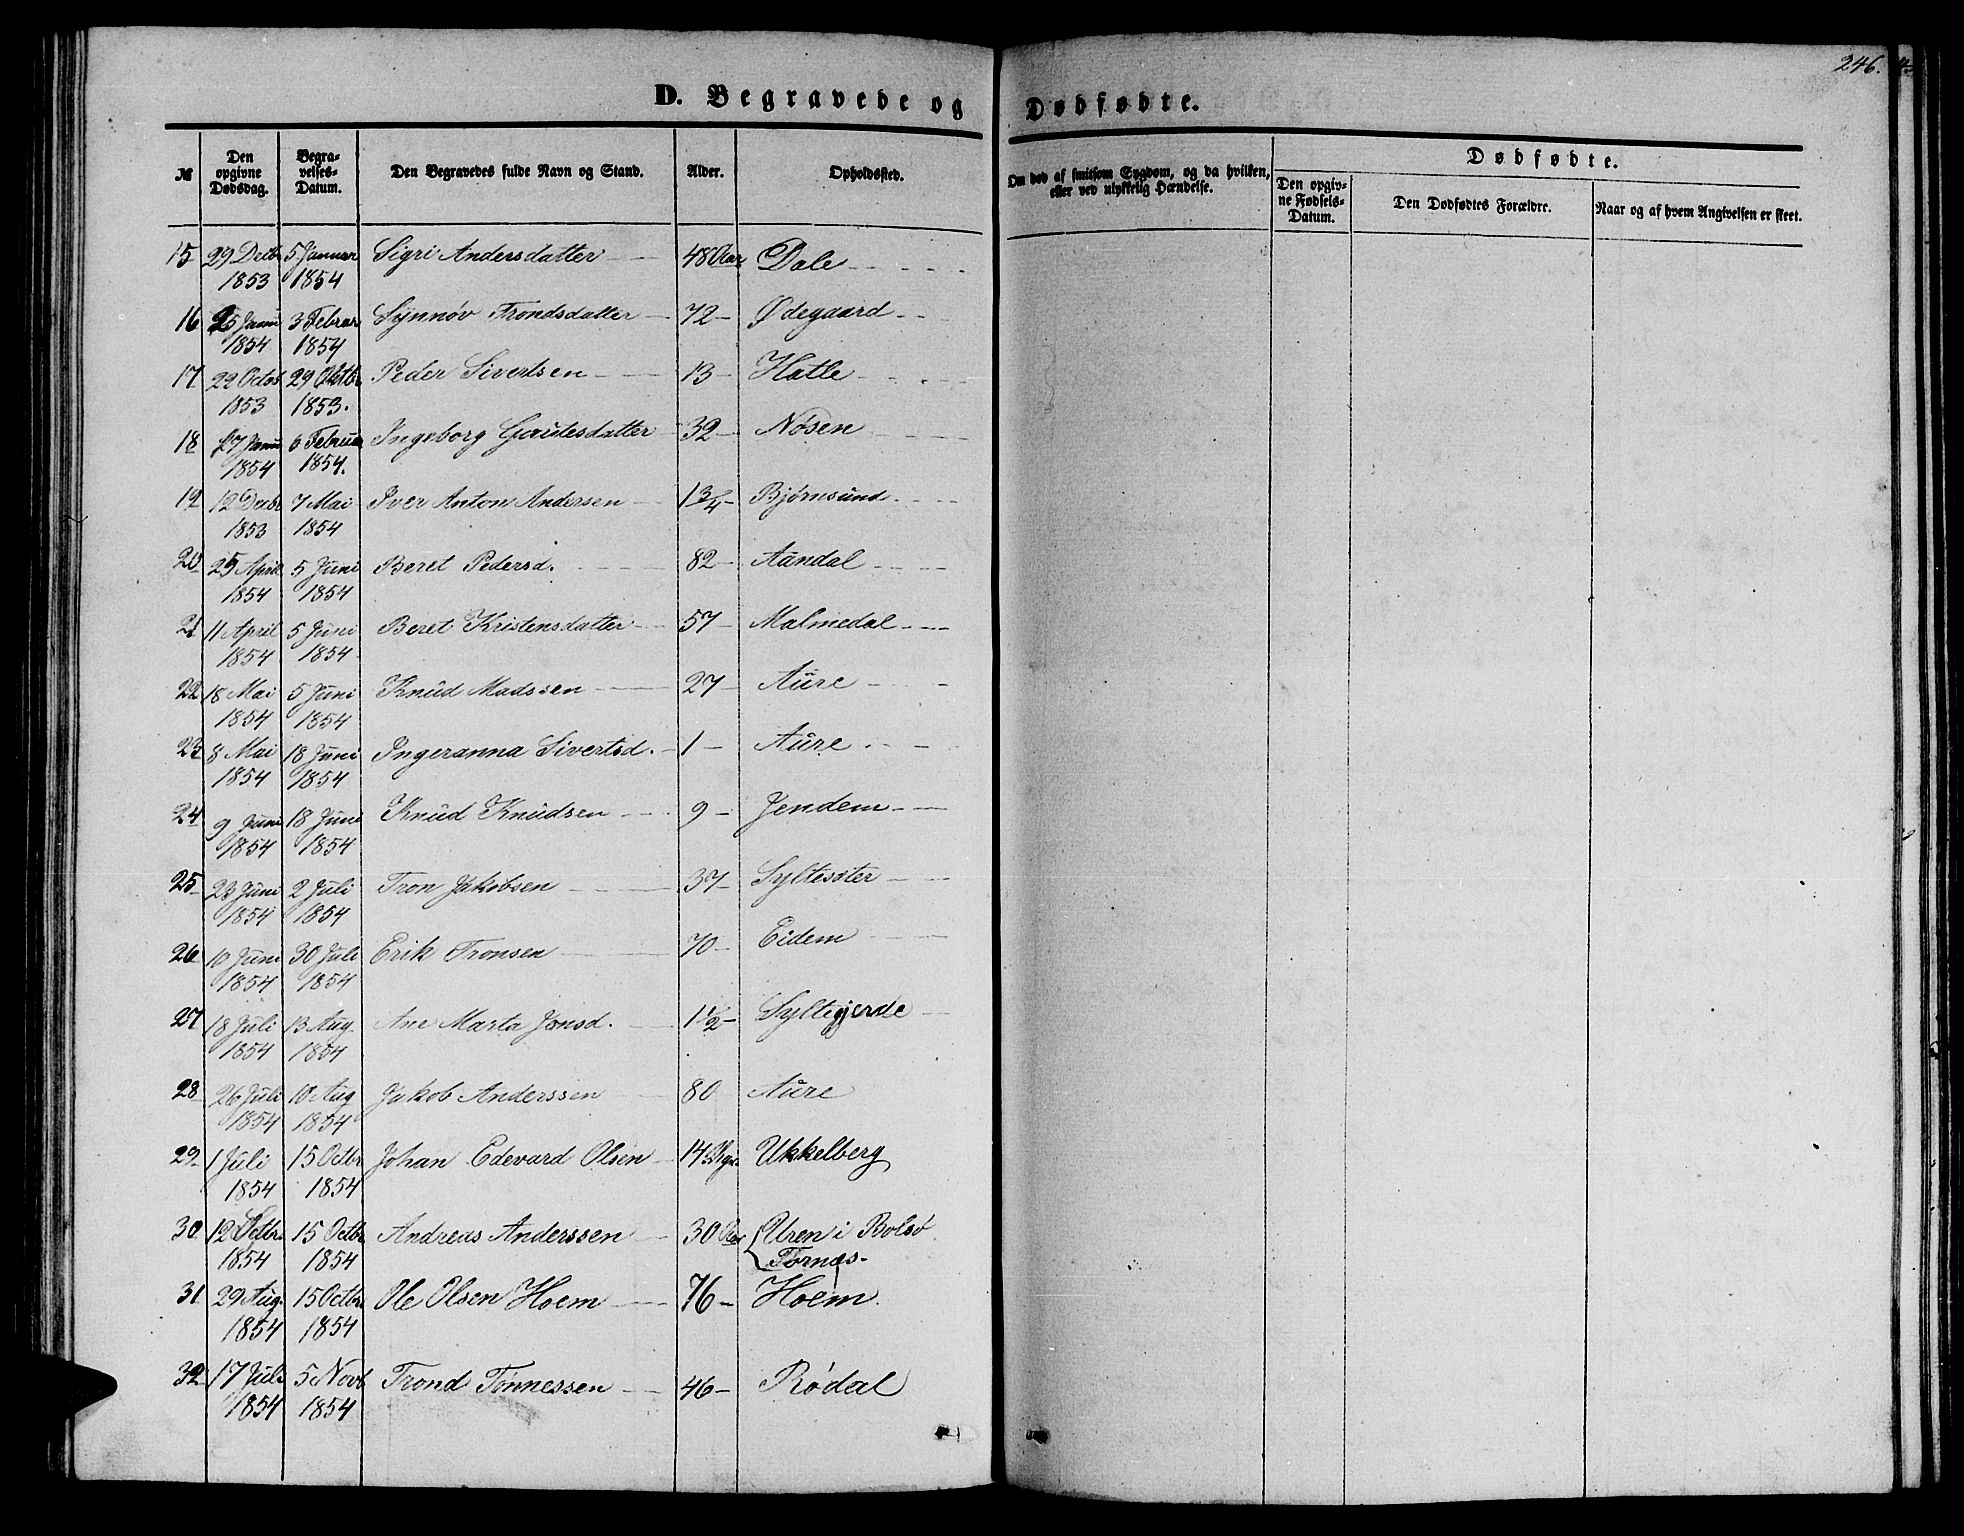 246.
D. Begravede og Dødfødte.
№ Den opgivne Dødsdag. Begravelses-Datum. Den Begravedes fulde Navn og Stand. Alder. Opholdssted. Om død af smitsom Sygdom, og da hvilken, eller ved ulykkelig Hændelse. Dødfødte.
Den opgivne Fødsels-Datum. Den Dødfødtes Forældre. Naar og af hvem Angivelsen er skeet.
15 29 Decbr 5 Januar Sigri Andersdatter 48 Aar Dale
1853 1854
16 25 Janu 3 Februar Synnøv Trondsdatter 72 Ødegaard
1854 1854
17 22 Octob 29 Oktb Peder Sivertsen 13 Hatle
1853 1853.
18 17 Janu 6 Februar Ingeborg Gautesdatter 32 Nøsen
1854 1854.
19 12 Decbr 7 Mai Iver Anton Andersen 1 3/4 Bjørnsund
1853 1854
20 25 April 5 Juni Beret Pedersd. 82 Aandal
1854 1854
21 11 April 5 Juni Beret Kristensdatter 57 Malmedal
1854 1854
22 18 Mai 5 Juni Knud Madssen 27 Aure
1854 1854
23 8 Mai 18 Juni Ingeranna Sivertsd. 1 Aure
1854 1854
24 9 Juni 18 Juni Knud Knudsen 9 Jendem
1854 1854
25 23 Juni 2 Juli Tron Jakobsen 37 Syltesæter
1854 1854
26 10 Juni 30 Juli Erik Tronsen 70 Eidem
1854 1854
27 18 Juli 13 Aug Ane Marta Jonsd. 1 1/2 Syltegjerde
1854 1854
28 26 Juli 10 Aug Jakob Anderssen 80 Aure
1854 1854
29 1 Juli 15 Octbr Johan Edevard Olsen 14 Ukkelberg
1854 1854
30 12 15 Octbr Andreas Anderssen 30 Aar Uren i Bolsø
1854 1854 Tornæs
31 29 Aug. 15 Octbr. Ole Olsen Hoem 76 Hoem.
1854 1854
32 17 Juli 5 Novb Trond Tønnessen 46 Rødal
1854 1854